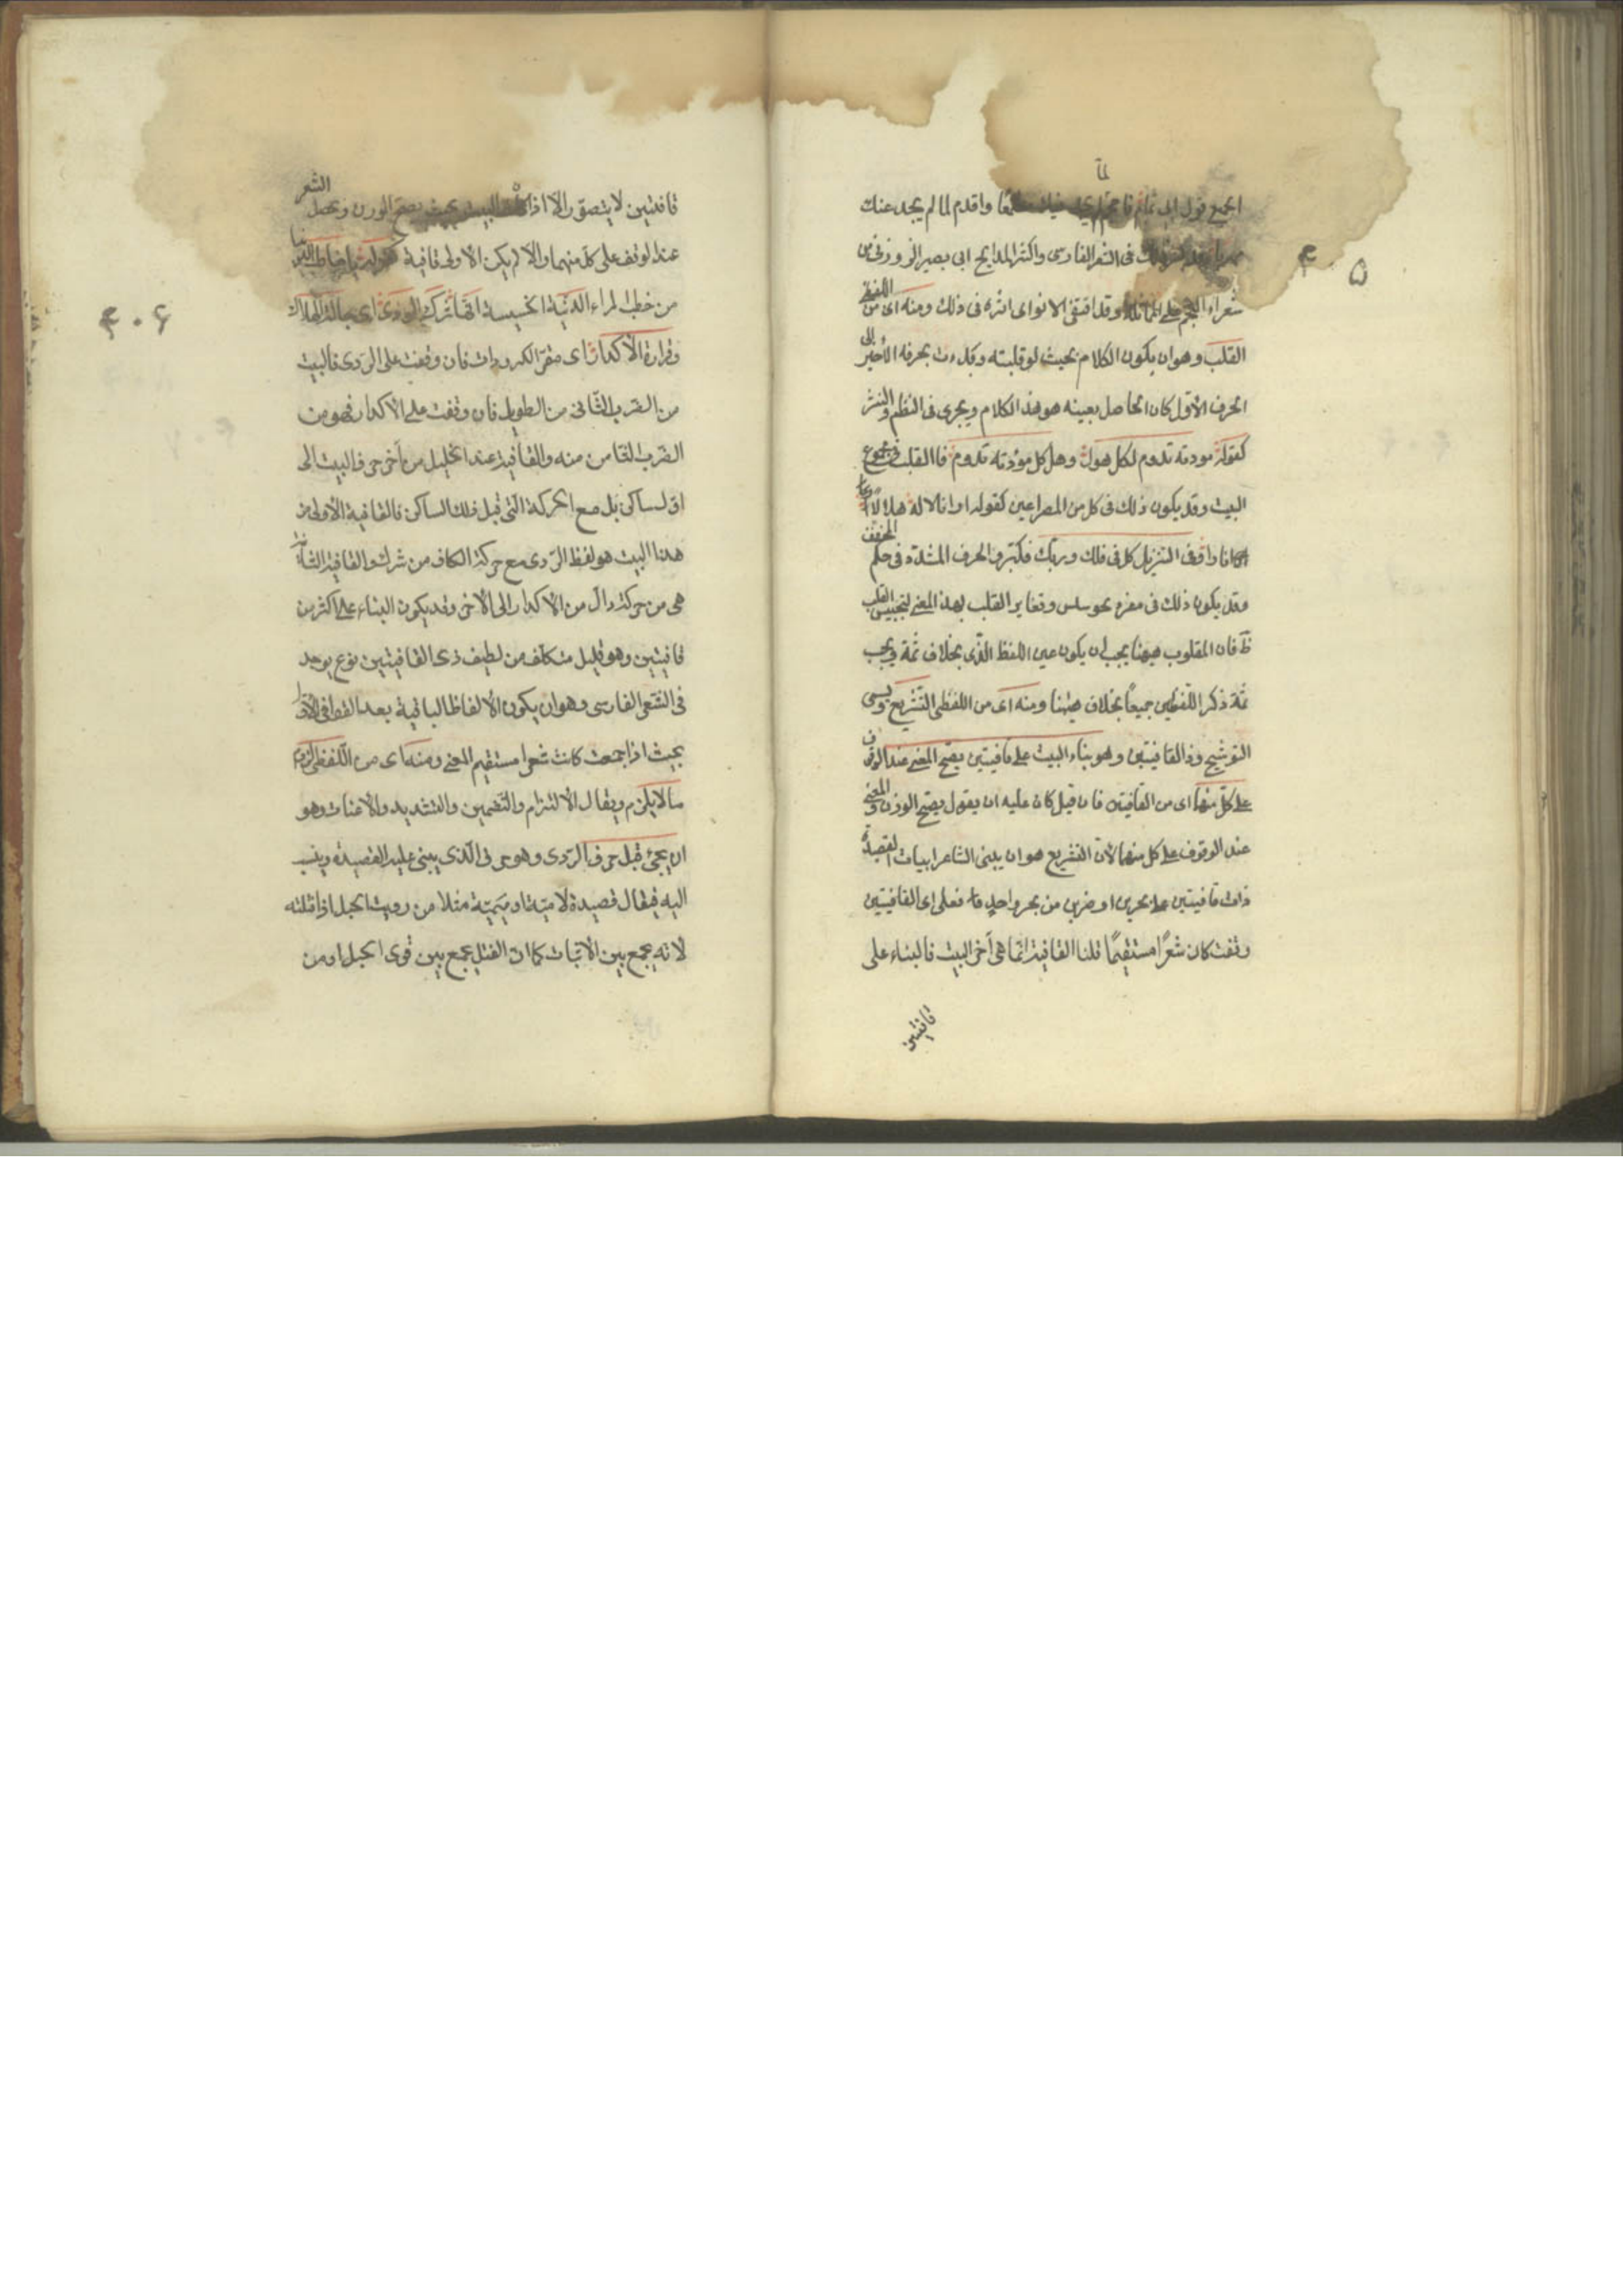 لما
الجميع قول ابى تمام فاحجم لما لم يجد فيك مطمعا واقدم لما لم يجد عنك
مهربا وقد كثر ذلك فى الشعر الفارسى واكثر المدايح ابى بصير الزوزنى من
شعراء العجم على المماثلة وقد اقتفى الانوارى اثره فى ذلك ومنه اى من اللفظى
القلب وهو ان يكون الكلام بحيث لو قلبته وبدءت بحرفه الأخير الى
الحرف الأول كان الحاصل بعينه هو هذا الكلام ويجرى فى النظم والنثر
كقوله مودته تدوم لكل هول وهل كل مودته تدوم فالقلب فى مجموع
البيت وقد يكون ذلك فى كل من المصراعين كقوله ارانا الاله هلالا
انارا وفى التنزيل كل فى فلك وربك فكبر والحرف المشدد فى حكم المخفف
وقد يكون ذلك فى مفرد نحو سلس وتغاير القلب بهذا المعنى لتجنيس القلب
ظ فان المقلوب ههنا يجب ان يكون عين اللفظ الذى بخلاف ثمة ويجب
ثمة ذكر اللفظين جميعا بخلاف ههنا ومنه اى من اللفظى التشريع ويسمى
التوشيح وذا القافيتين وهو بناء البيت على قافيتين يصح المعنى عند الوقوف
على كل منهما اى من القافيتين فان قيل كان عليه ان يقول يصح الوزن والمعنى
عند الوقوف على كل منهما لأن التشريع هو ان يبنى الشاعر ابيات القصيدة
ذات قافيتين على بحرين او ضربين من بحر واحد فعلى اى القافيتين
وقفت كان شعرا مستقيما قلنا القافية انما هى آخر البيت فالبناء على
قافيتين
۴ ۵
قافيتين لا يتصور الا اذا كان البيت بحيث يصح الوزن ويحصل الشعر
عند الوقف على كل منهما والا لم يكن الاولى قافية كقوله يا خاطب الدنيا
من خطب المراء الدنية الخسيسة انها شرك الردى اى حبالة الهلاك
وقرارة الأكدار اى مقر الكدورات فان وقفت على الردى فالبيت
من الضرب الثانى من الطويل فان وقفت على الأكدار فهو من
الضرب الثامن منه والقافية عند الخليل من آخر حرف البيت الى
اول ساكن بل مع الحركة التى قبل ذلك الساكن فالقافية الأولى من
هذا البيت هو لفظ الردى مع حركة الكاف من شرك والقافية الثانية
هى من حركة دال من الأكدار الى الآخر وقد يكون البناء على اكثر من
قافيتين وهو قليل متكلف من لطيف ذى القافيتين نوع يوجد
فى الشعر الفارسى وهو ان يكون الألفاظ الباقية بعد القوافى الأول
بحيث اذا جمعت كانت شعرا مستقيم المعنى ومنه اى من اللفظى لزوم
ما لا يلزم ويقال الالتزام والتضمين والتشديد والاعنات وهو
ان يجئ قبل حرف الردى وهو حرف الذى يبنى عليه القصيدة وينسب
اليه فيقال قصيدة لامية او ميمية مثلا من رويت الحبل اذا فتلته
لانه يجمع بين الابيات كما ان الفتل يجمع بين قوى الحبل او من
۴۰۶